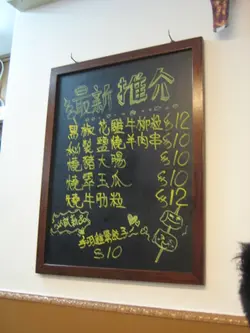 最新推介
黑椒花雕牛柳粒 $12
秘製鹽燒羊肉串 $10
燒豬大腸 $10
燒翠玉瓜 $10
燒牛肋粒 $12
$10